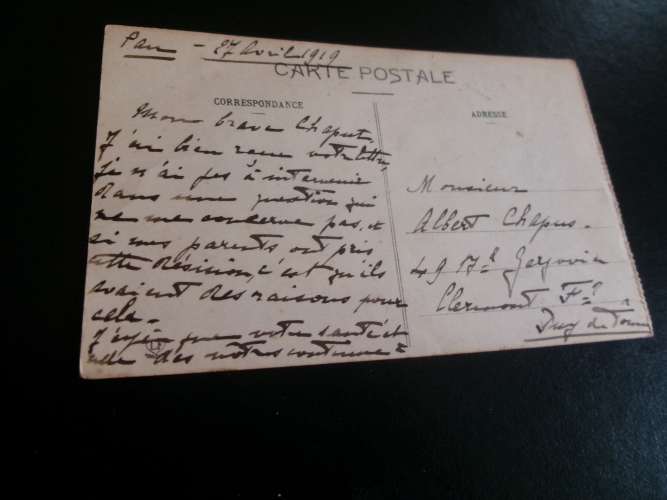 Pau - 27 Avril 1919
CARTE POSTALE
CORRESPONDANCE
ADRESSE
Mon brave Chaput,
J'ai bien reçu votre lettre,
je n'ai pas à intervenir
dans une question qui
ne me concerne pas, et
si mes parents ont pris
cette décision, c'est qu'ils
avaient des raisons pour
cela.
J'espère que votre santé et
celle des vôtres
Monsieur
Albert Chapus.
49 Bd Gergovia
Clermont Fd
Puy de Dôme